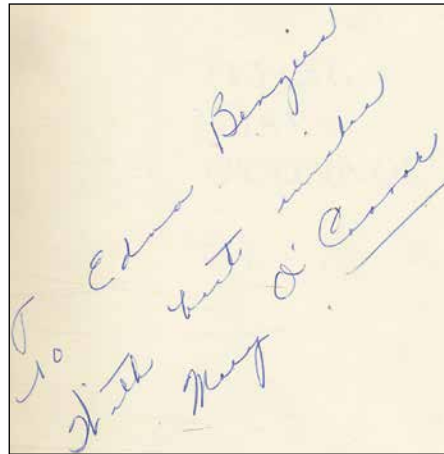 To Edna Benzies
With best wishes
Mary O'Connor